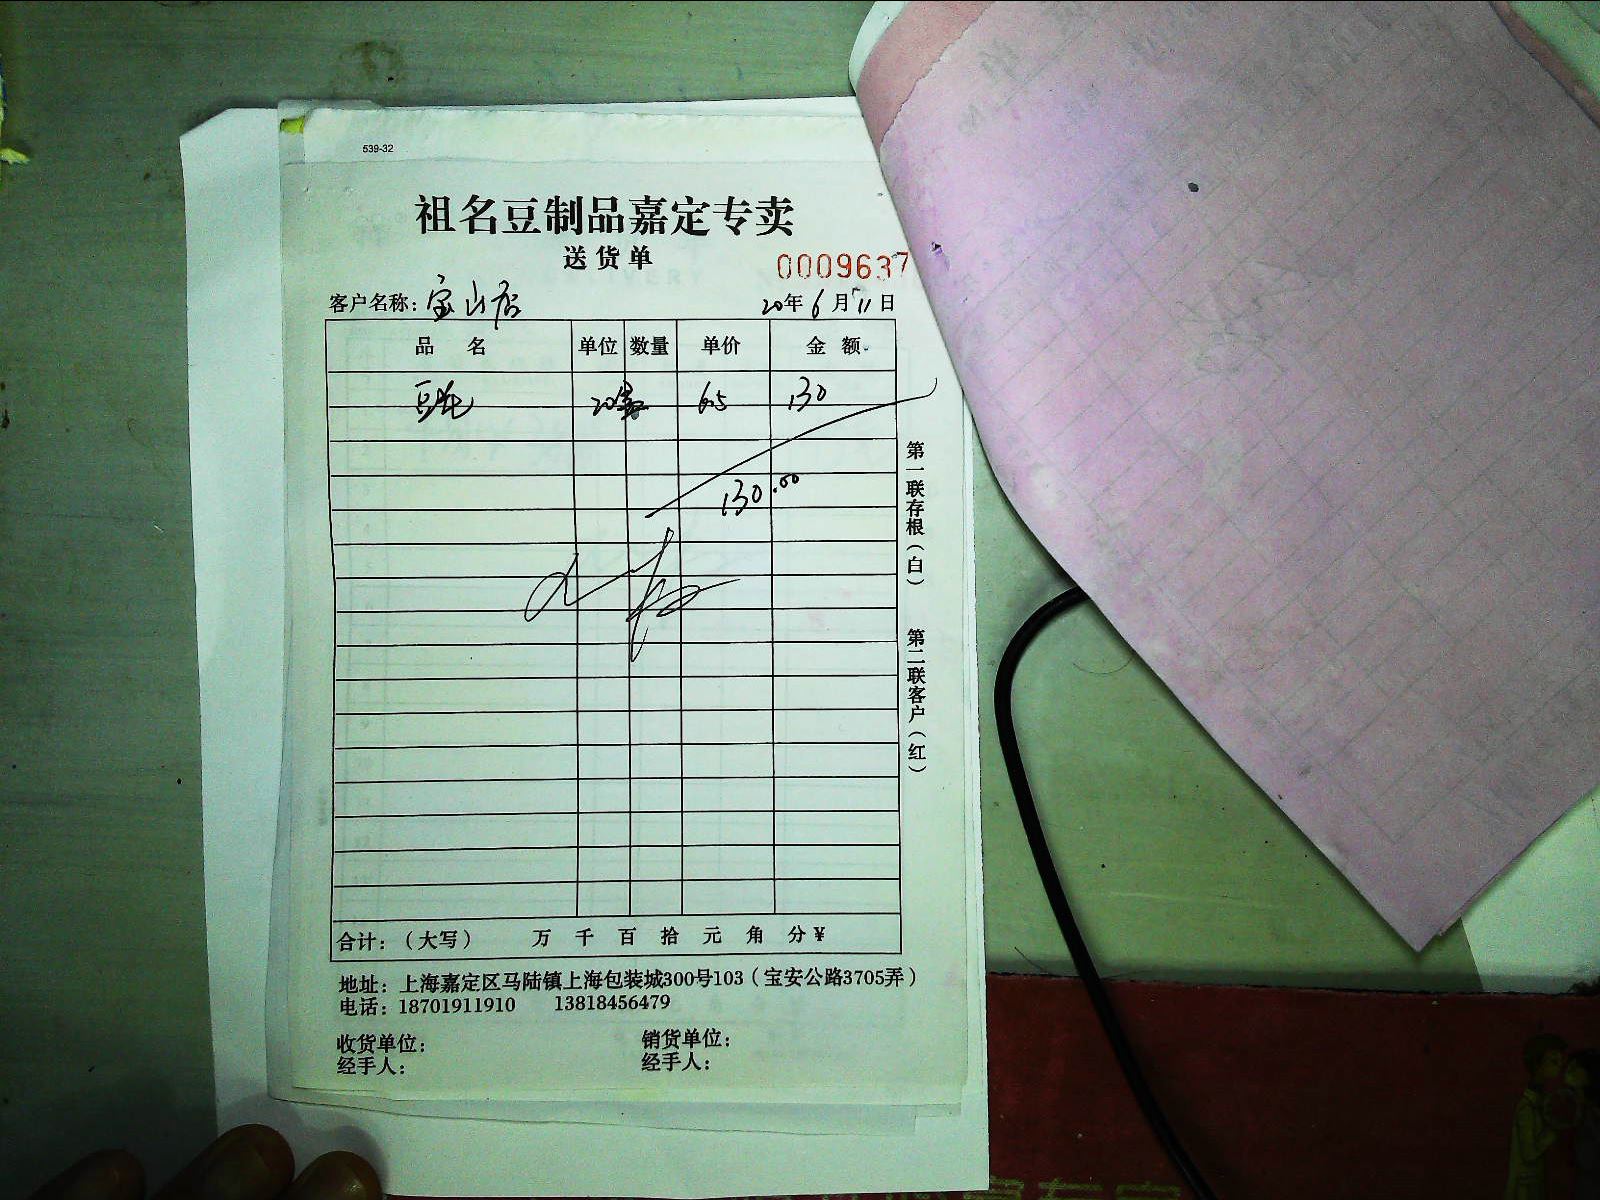 539-32
祖名豆制品嘉定专卖
送货单
0009637
客户名称：宝山店 20年6月11日
品名 单位 数量 单价 金额
20 6.5 130
130.00
第一联存根（白） 第二联客户（红）
合计：（大写） 万 千 百 拾 元 角 分 ¥
地址：上海嘉定区马陆镇上海包装城300号103（宝安公路3705弄）
电话：18701911910 13818456479
收货单位： 销货单位：
经手人： 经手人：